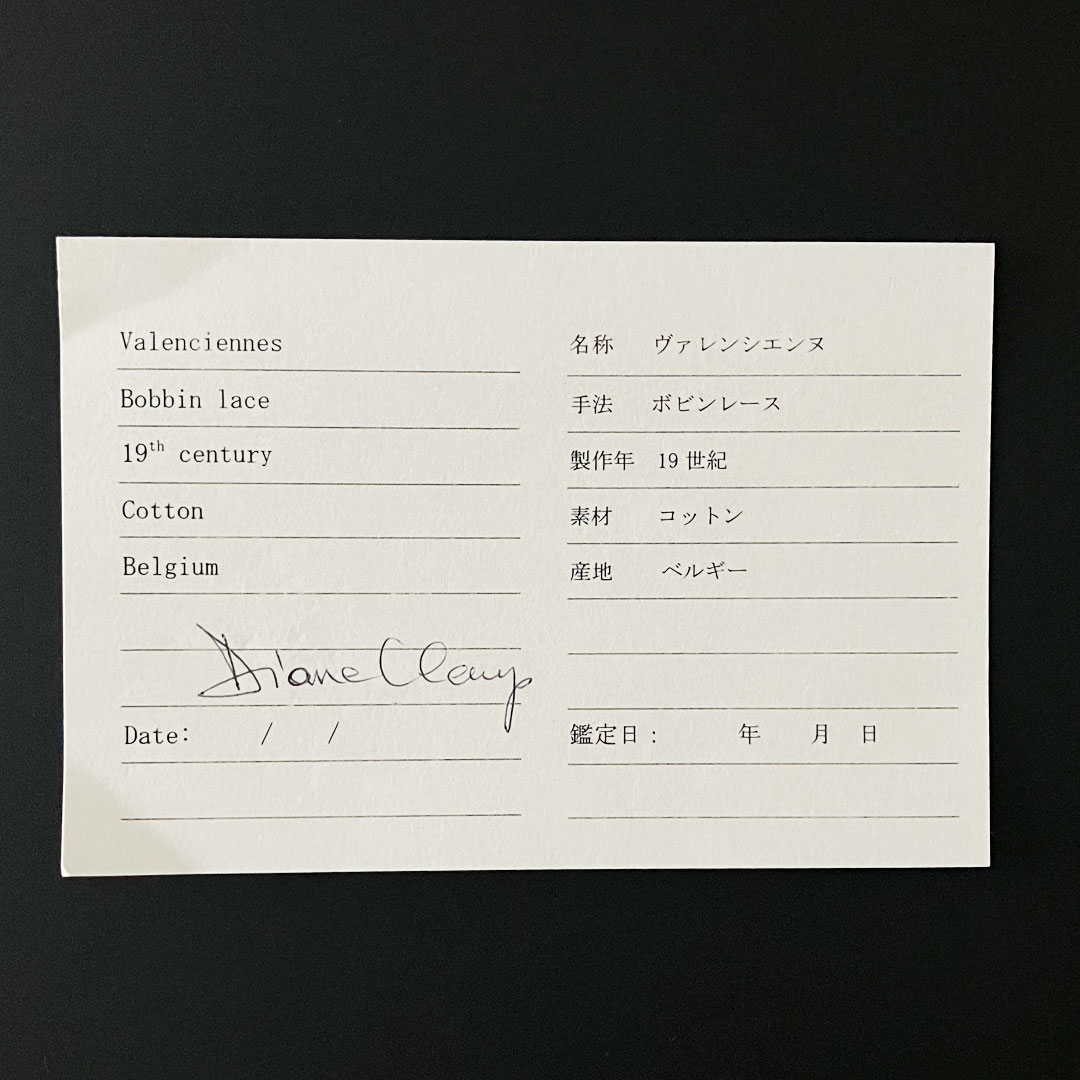 Valenciennes
Bobbin lace
19th century
Cotton
Belgium
Diane
Date: / /
名称 ヴァレンシエンヌ
手法 ボビンレース
製作年 19世紀
素材 コットン
産地 ベルギー
鑑定日: 年 月 日